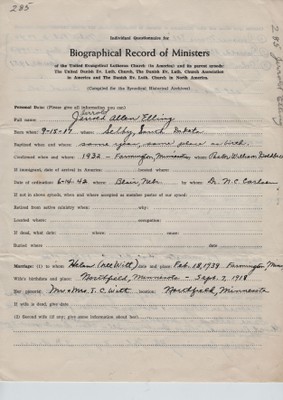 285
285 Jerrold Elling
Individual Questionnaire for
Biographical Record of Ministers
of the United Evangelical Lutheran Church (in America) and its parent synods:
The United Danish Ev. Luth. Church, The Danish Ev. Luth. Church Association
in America and The Danish Ev. Luth. Church in North America.
(Compiled for the Synodical Historical Archives)
Personal Data: (Please give all information you can)
Jerrold
Full name: Allen Elling
Born when: 9-15-17 where: Selby, South Dakota
Baptized when and where: same year, same place as birth.
Confirmed when and where: 1932 - Farmington, Minnesota whom: Pastor William
If immigrant, date of arrival in America: located where:
Date of ordination: 6-14-42 where: Blair, Nebr. by Dr. N.C. Carlsen
If not in above synods, when and where accepted as member pastor of our synod:
Retired from active ministry when: why:
Located where: occupation:
If dead, what date: where: cause:
Buried where date
Marriage: (1) to whom: Helen (nee Witt) date and place: Feb. 18, 1939 Farmington, Minn
Wife's birthdate and place: Northfield, Minnesota - Sept. 7, 1918
Her parents: Mr & Mrs. T. C. Witt location: Northfield, Minnesota
If wife is dead, give date
(2) Second wife (if any; give same information about her)